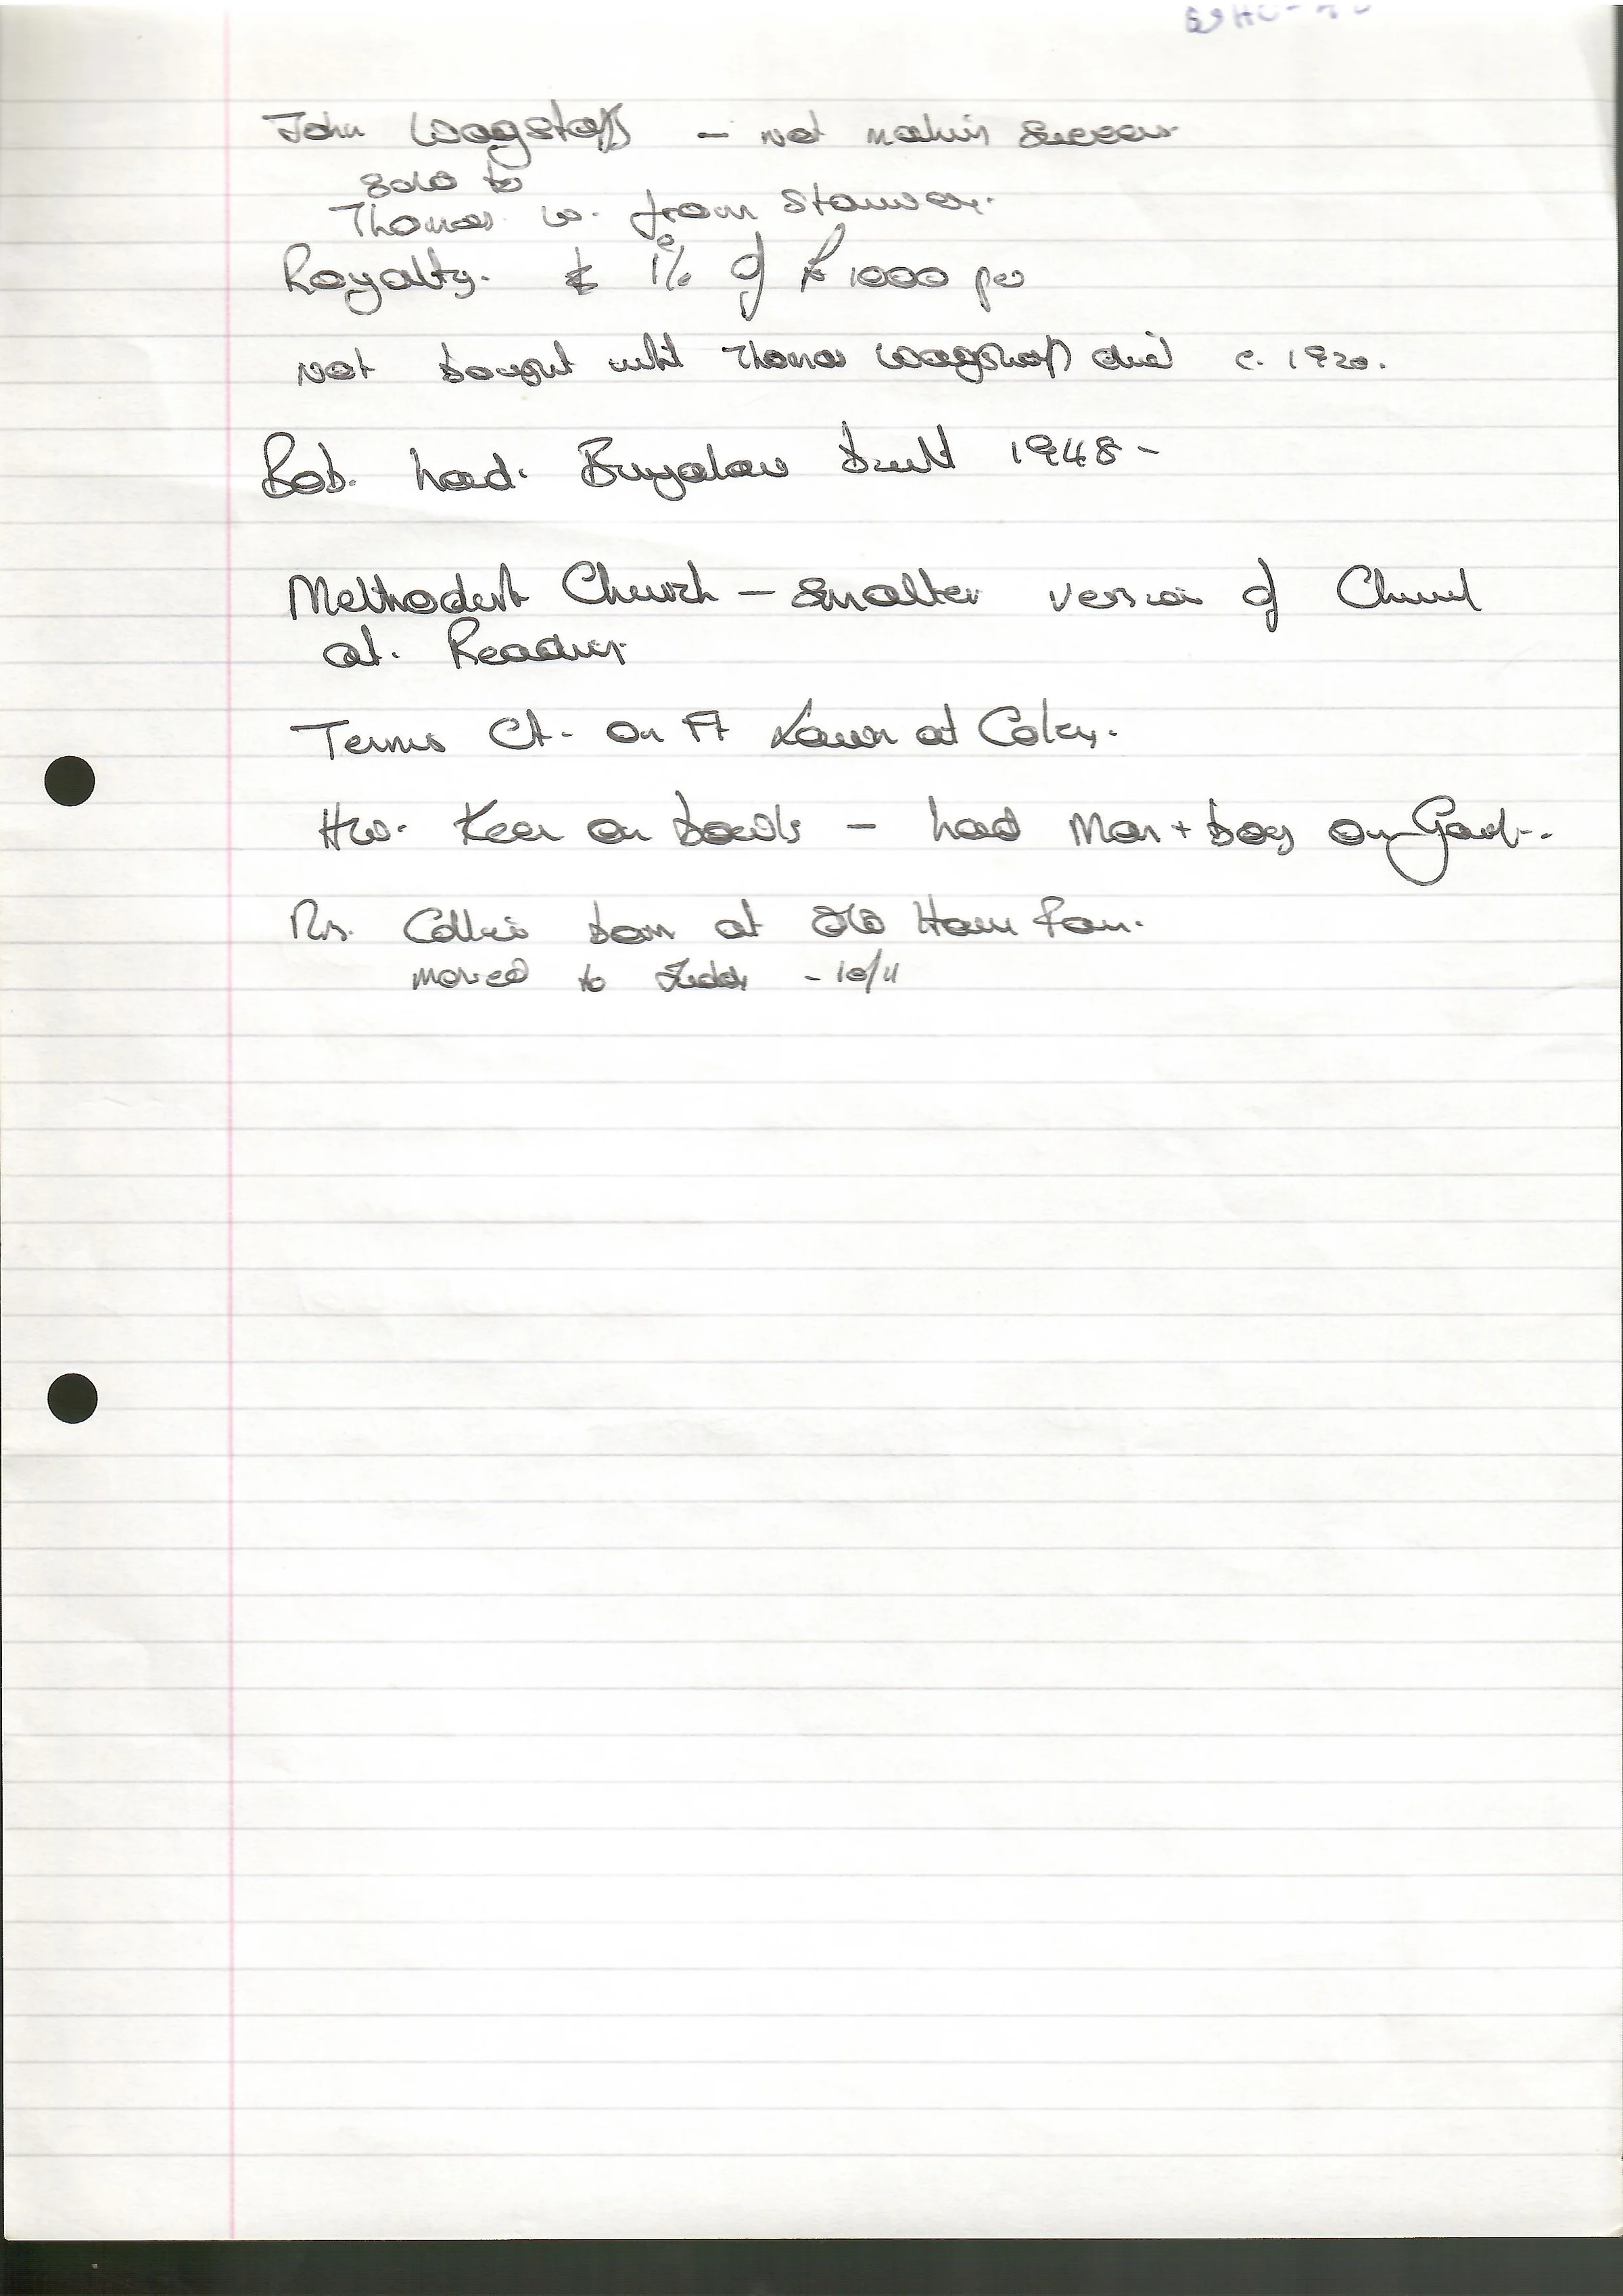 John Wagstaff – not makin success
sold to
Thomas W. from Stanwex.
Royalty. 1% of £1000 per
Not bought until Thomas Wagstaff died c. 1920.
Bob. had. Bungalow built 1948 –
Methodist Church – smaller version of Church
at. Reading
Tennis Ct. on Ft Lawn at Coley.
HW. Keen on bowls – had Man + boy on Gard..
Mrs. Collis born at Old Ham Farm.
moved to – 10/11